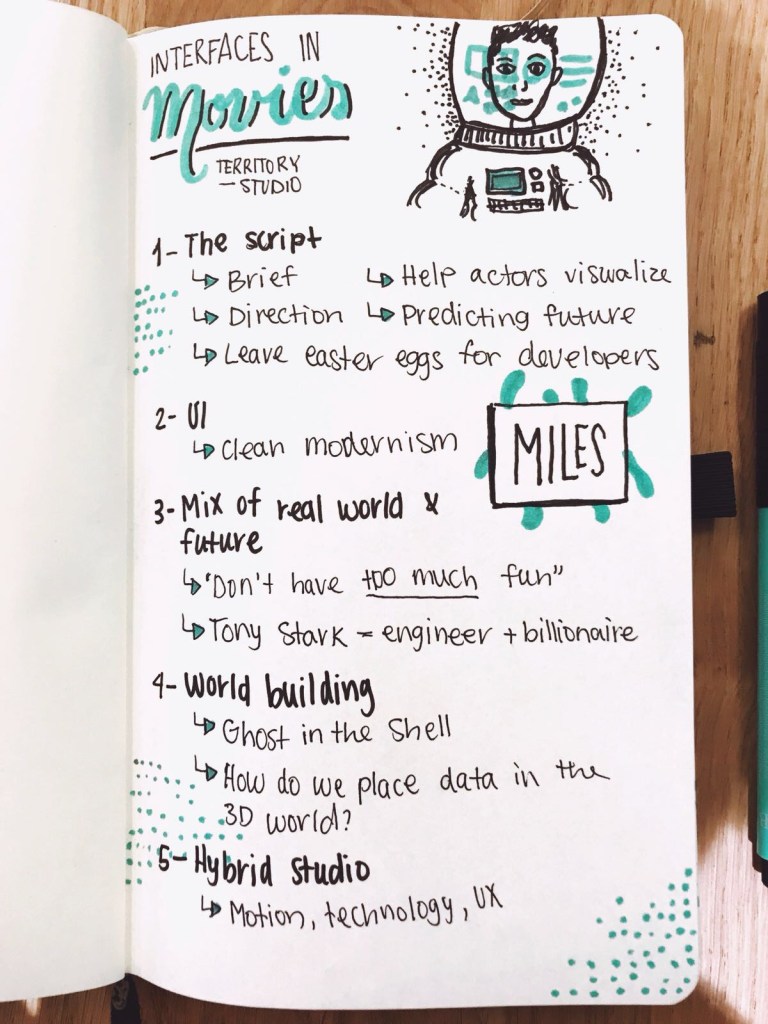 INTERFACES IN
Movies
TERRITORY
— STUDIO
1- The script
↳ Brief ↳ Help actors viswalize
↳ Direction ↳ Predicting future
↳ Leave easter eggs for developers
2- UI
↳ Clean modernism
MILES
3- Mix of real world &
future
↳ "Don't have too much fun"
↳ Tony Stark = engineer + billionaire
4- World building
↳ Ghost in the Shell
↳ How do we place data in the
3D world?
5- Hybrid studio
↳ Motion, technology, UX